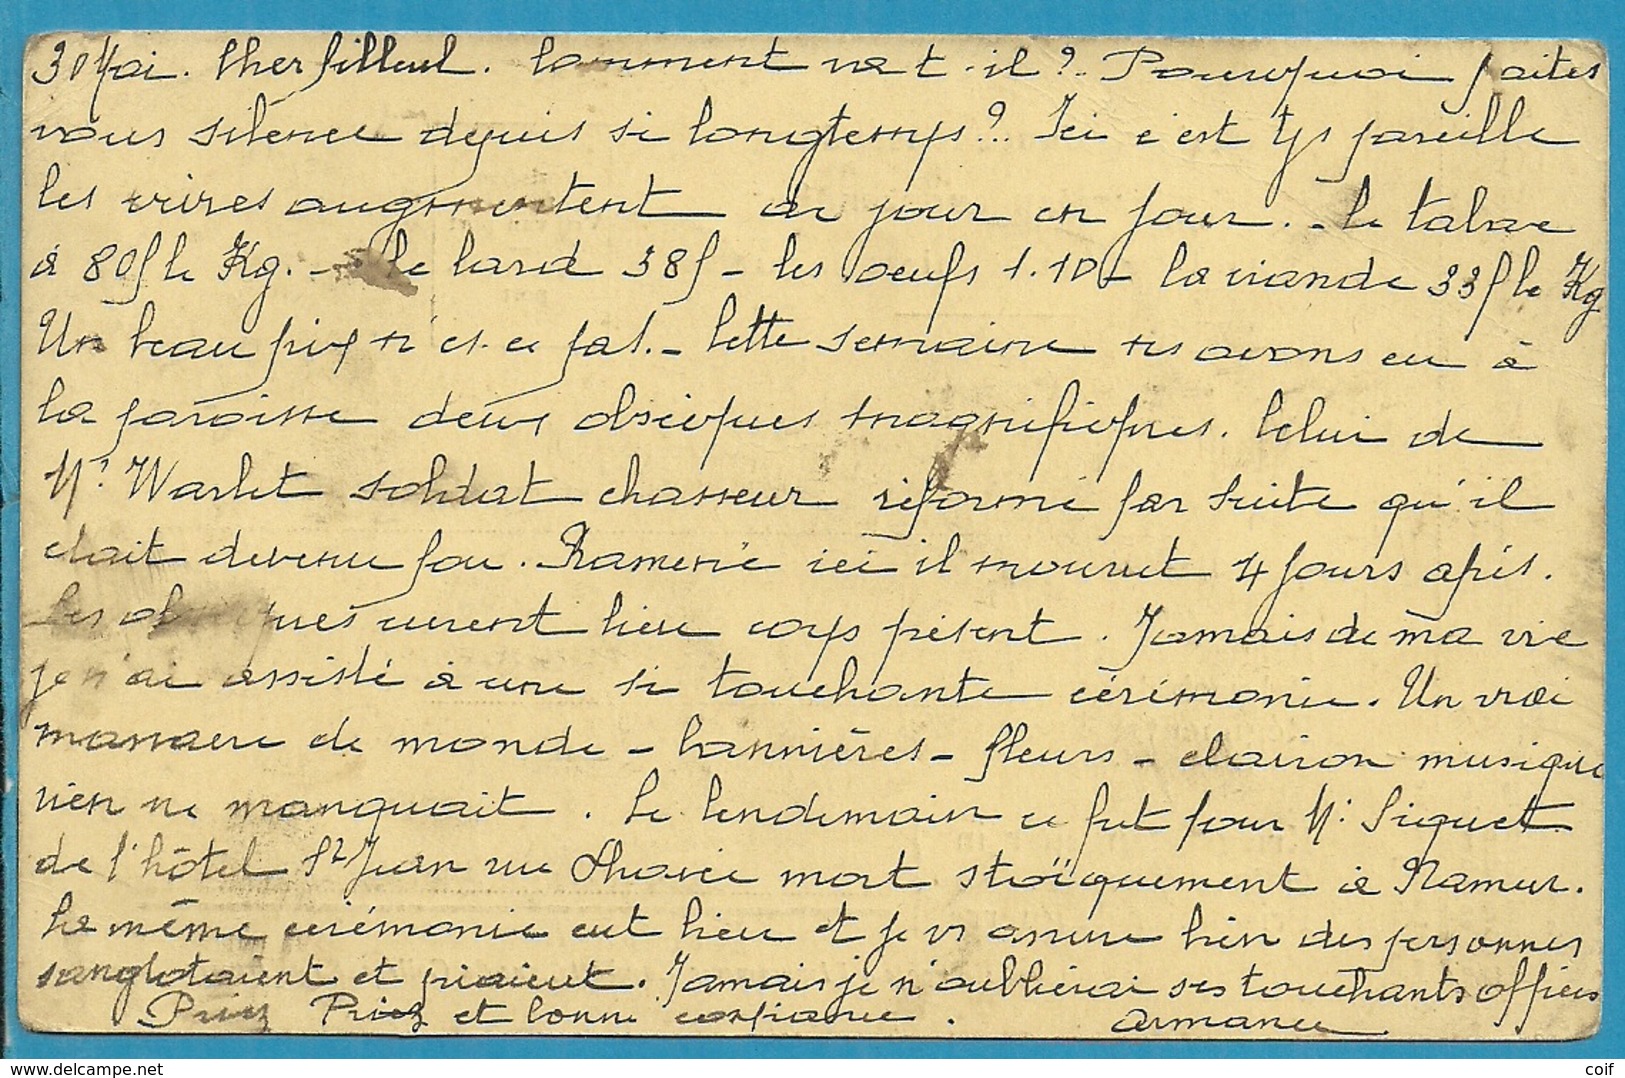 30 Mai. Cher filleul. Comment va t-il ?.. Pourquoi faites
vous silence depuis si longtemps ?.. Ici c'est tjs pareille
les vivres augmentent de jour en jour. - le tabac
à 80f le Kg. - le lard 38f - les oeufs 1.10 - la viande 33f le Kg
Un beau prix n'est-ce pas. - Cette semaine ns avons eu à
la paroisse deux obsèques magnifiques. Celui de
Mr Warlet soldat chasseur réformé par suite qu'il
était devenu fou. Ramené ici il mourut 4 jours après.
Les obsèques eurent lieu corps présent. Jamais de ma vie
je n'ai assisté à une si touchante cérémonie. Un vrai
massacre de monde - bannières - fleurs - clairon musique
rien ne manquait. Le lendemain ce fut pour M. Piquet
de l'hôtel St Jean rue mort stoïquement à Namur.
La même cérémonie eut lieu et je vs assure bien des personnes
sanglotaient et priaient. Jamais je n'oublierai ses touchants offices
Priez Priez et bonne confiance. Armance
coif
www.delcampe.net